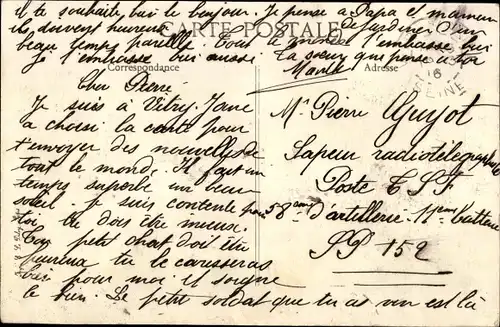 il te souhaite bui le bonjour. Je pense à Papa et maman
ils doivent heureux de jardiner d'un
CARTE POSTALE
beau temps pareille. Tout le monde t'embrasse bui
je t'embrasse bui aussi Ta sœur qui pense à toi
Marie
Correspondance
Adresse
Cher Pierre
Je suis à Vitry. Jane
a choisi la carte pour
t'envoyer des nouvelles de
tout le monde. Il fait un
temps superbe un beau
soleil. Je suis contente pour
toi tu dois être mieux.
Ton petit chat doit être
heureux tu le caresseras
bui pour moi il soigne
le bien. Le petit soldat que tu as vu est là
Mr Pierre Guyot
Sapeur radiotélégraphe
Poste TSF
58eme d'artillerie. 11eme batterie
SP 152